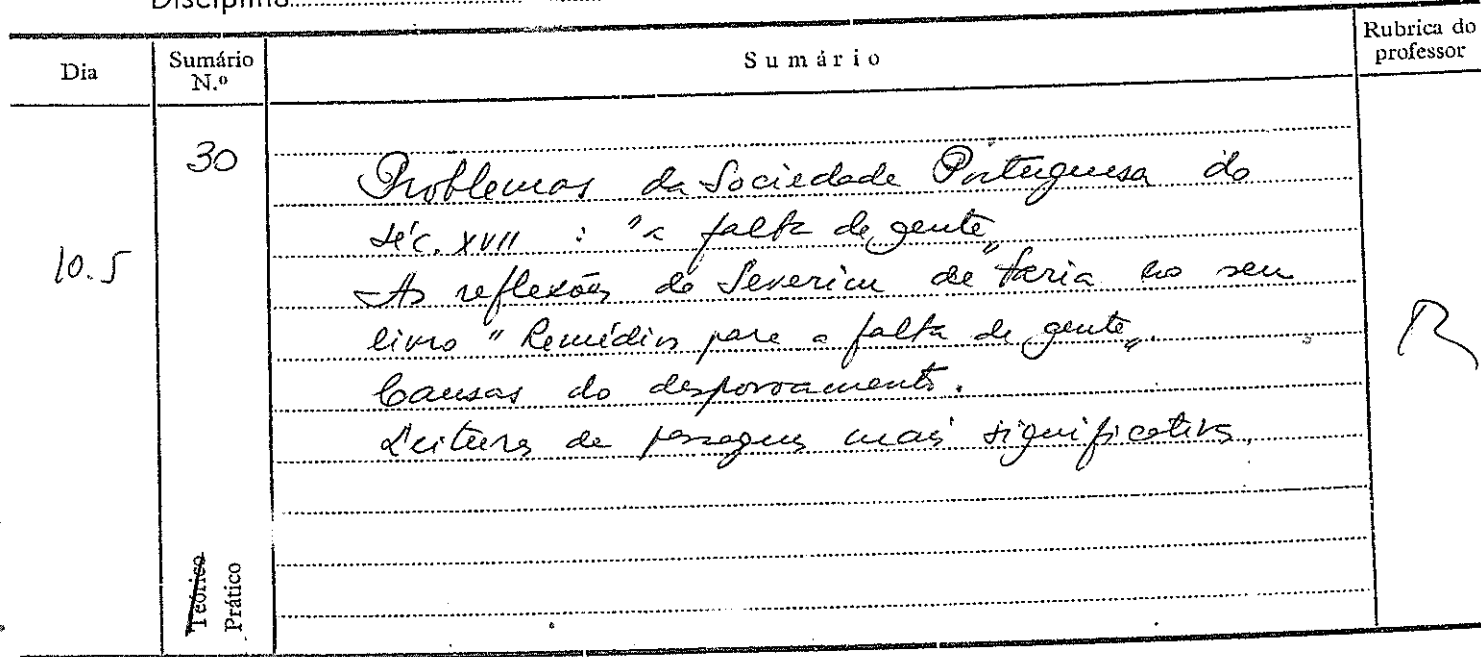 Disciplina
Dia
Sumário N.º
Sumário
Rubrica do professor
10.5
30
Problemas da Sociedade Portuguesa do
séc. XVII : "a falta de gente"
As reflexões de Severim de Faria no seu
livro "Remédios para a falta de gente".
Causas do despovoamento.
Leitura de passagens mais significativas.
R
Teórico
Prático